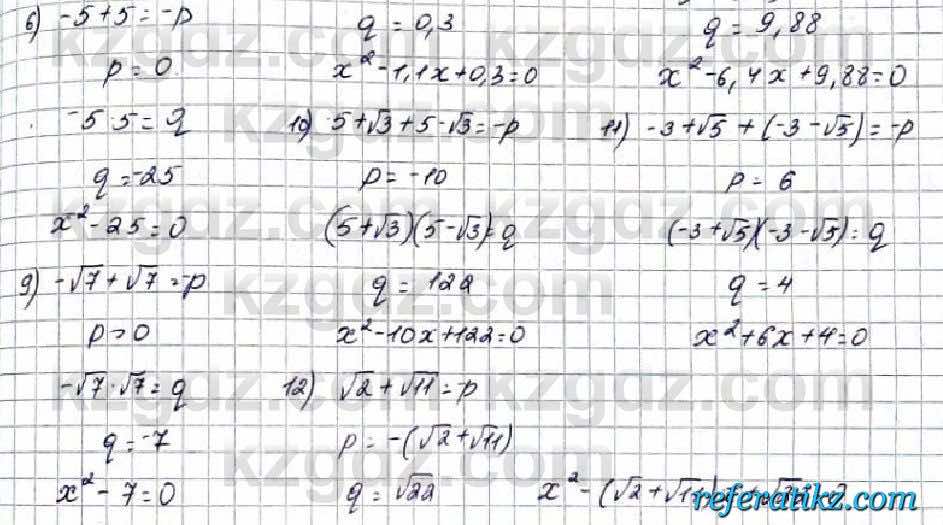 6) -5+5=-p
p=0
-5·5=q
q=-25
x²-25=0
9) -√7+√7=-p
p=0
-√7·√7=q
q=-7
x²-7=0
q=0,3
x²-1,1x+0,3=0
10) 5+√3+5-√3=-p
p=-10
(5+√3)(5-√3)=q
q=122
x²-10x+122=0
12) √2+√11=-p
p=-(√2+√11)
q=√22
x²-(√2+√11)
q=9,88
x²-6,4x+9,88=0
11) -3+√5+(-3-√5)=-p
p=6
(-3+√5)(-3-√5)=q
q=4
x²+6x+4=0
kzgdz.com
referatikz.com